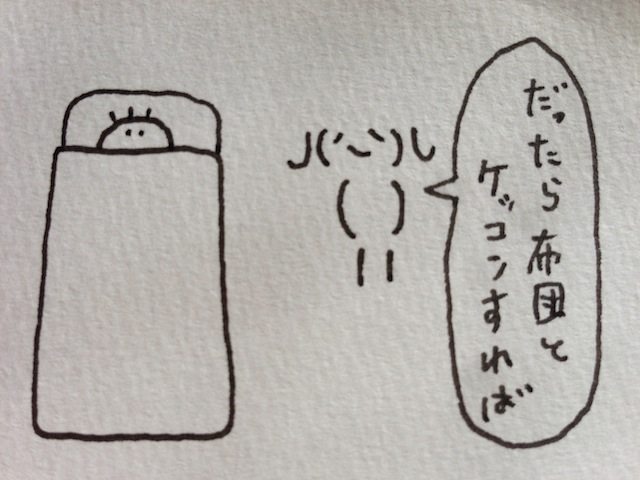 だったら布団と
ケッコンすれば